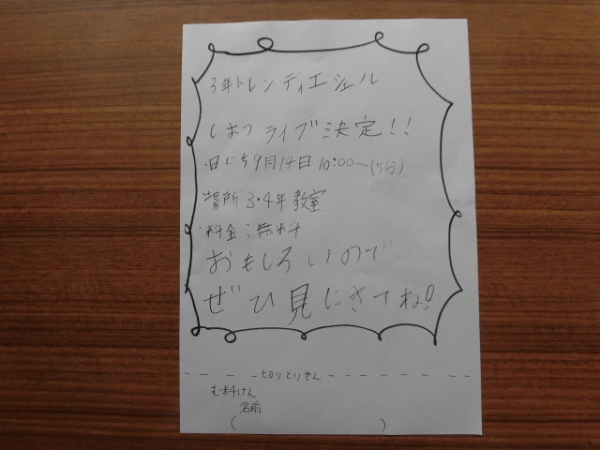 3年トレンディエシェル
しまつライブ決定!!
日にち9月14日10:00〜(5分)
場所3・4年教室
料金:無料
おもしろいので
ぜひ見にきてね!
切りとりせん
む料けん
名前
( )